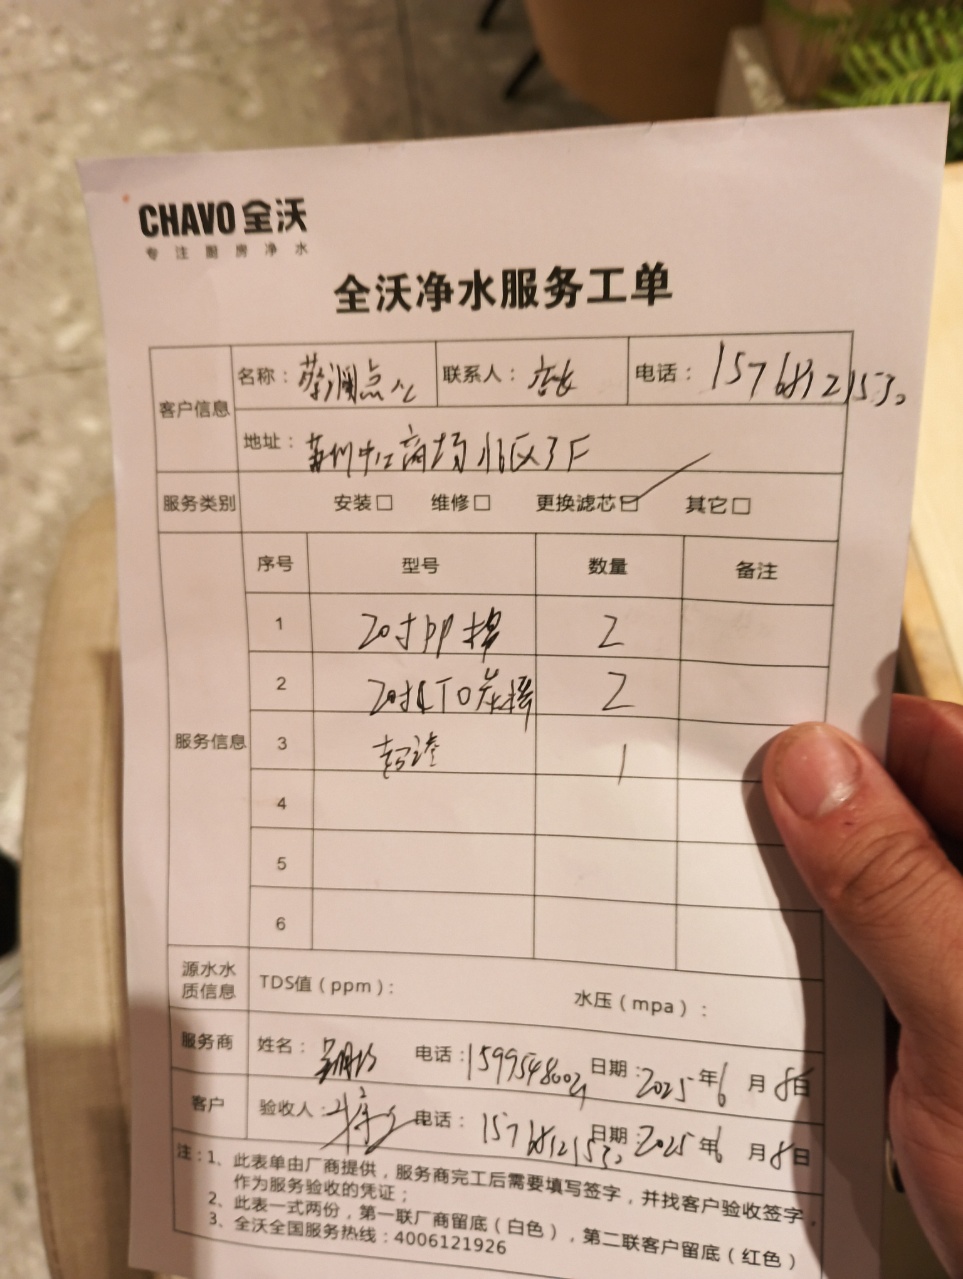 CHAVO 全沃
专注厨房净水
全沃净水服务工单
客户信息 名称：点 联系人：店长 电话：15768121530
地址：苏州中心商场北区3F
服务类别 安装□ 维修□ 更换滤芯☑ 其它□
服务信息 序号 型号 数量 备注
1 20寸PP棉 2
2 20寸CTO炭棒 2
3 超滤 1
4
5
6
源水水质信息 TDS值（ppm）： 水压（mpa）：
服务商 姓名： 电话：15995480024 日期：2025年6月8日
客户 验收人： 电话：15768121530 日期：2025年6月8日
注：1、此表单由厂商提供，服务商完工后需要填写签字，并找客户验收签字，
作为服务验收的凭证；
2、此表一式两份，第一联厂商留底（白色），第二联客户留底（红色）
3、全沃全国服务热线：4006121926